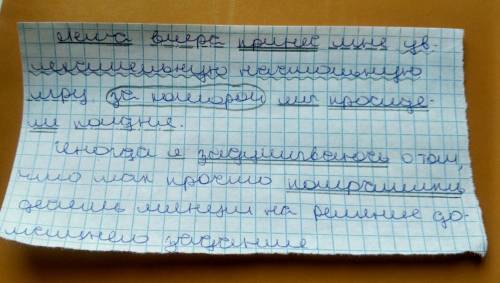 Лёша вчера принёс мне ув-
лекательную настольную
игру за которой мы просиде-
ли полдня.
Иногда я задумываюсь о том,
что так просто потратить
минуты на решение до-
машнего задания